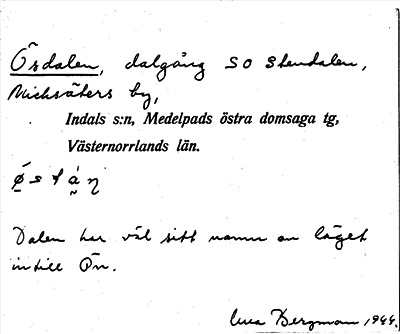 Ösdalen, dalgång SO Stendalen,
Nichsäters by,
Indals s:n, Medelpads östra domsaga tg,
Västernorrlands län.
Dalen har väl sitt namn av läget
intill Ön.
Bergman 1944.